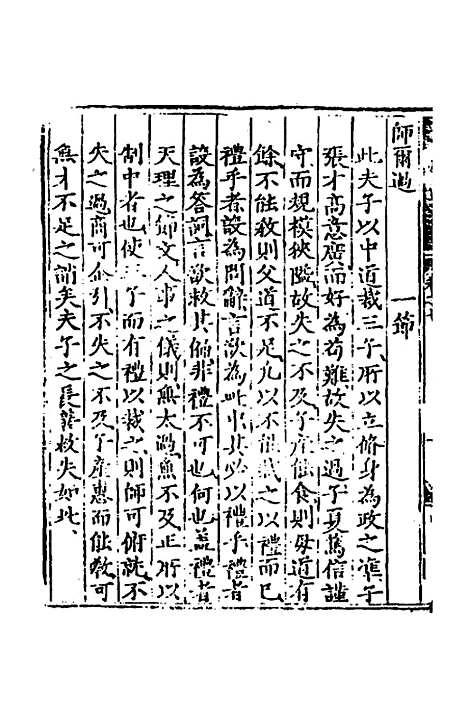 師爾過　一節
此夫子以中道裁三子所以立脩身為政之準子
張才高意廣而好為苟難故失之過子夏篤信謹
守而規模狹隘故失之不及子產能食則母道有
餘不能教則父道不足凡以不能裁之以禮而已
禮乎者設為問辭言欲為此中其必以禮乎禮者
設為答詞言欲救其偏非禮不可也何也蓋禮者
天理之節文人事之儀則無太過無不及正所以
制中者也使三子而有禮以裁之則師可俯就不
失之過商可企引不失之不及子產惠而能教可
無才不足之誚矣夫子之長善救失如此